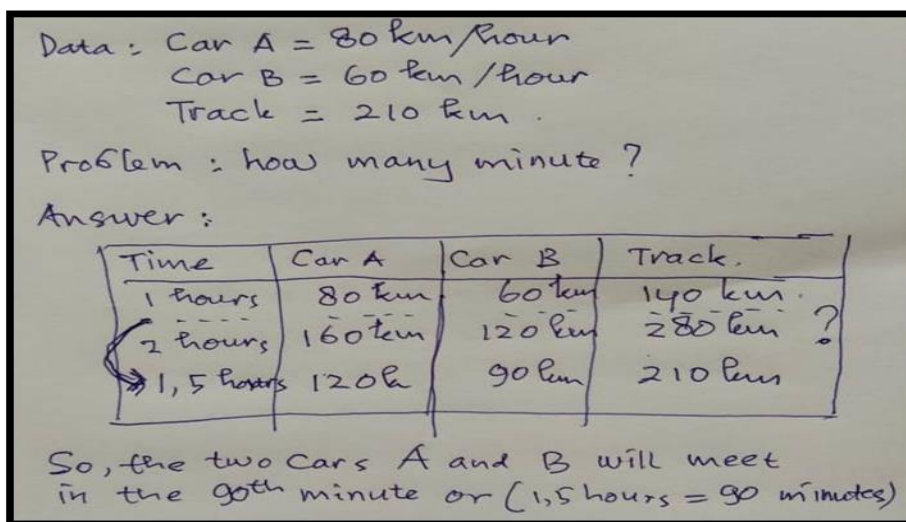 Data : Car A = 80 km/hour
Car B = 60 km/hour
Track = 210 km.
Problem : how many minute ?
Answer :
Time Car A Car B Track.
1 hours 80 km 60 km 140 km.
2 hours 160 km 120 km 280 km ?
1,5 hours 120k 90 km 210 km
So, the two cars A and B will meet
in the 90th minute or (1,5 hours = 90 minutes)